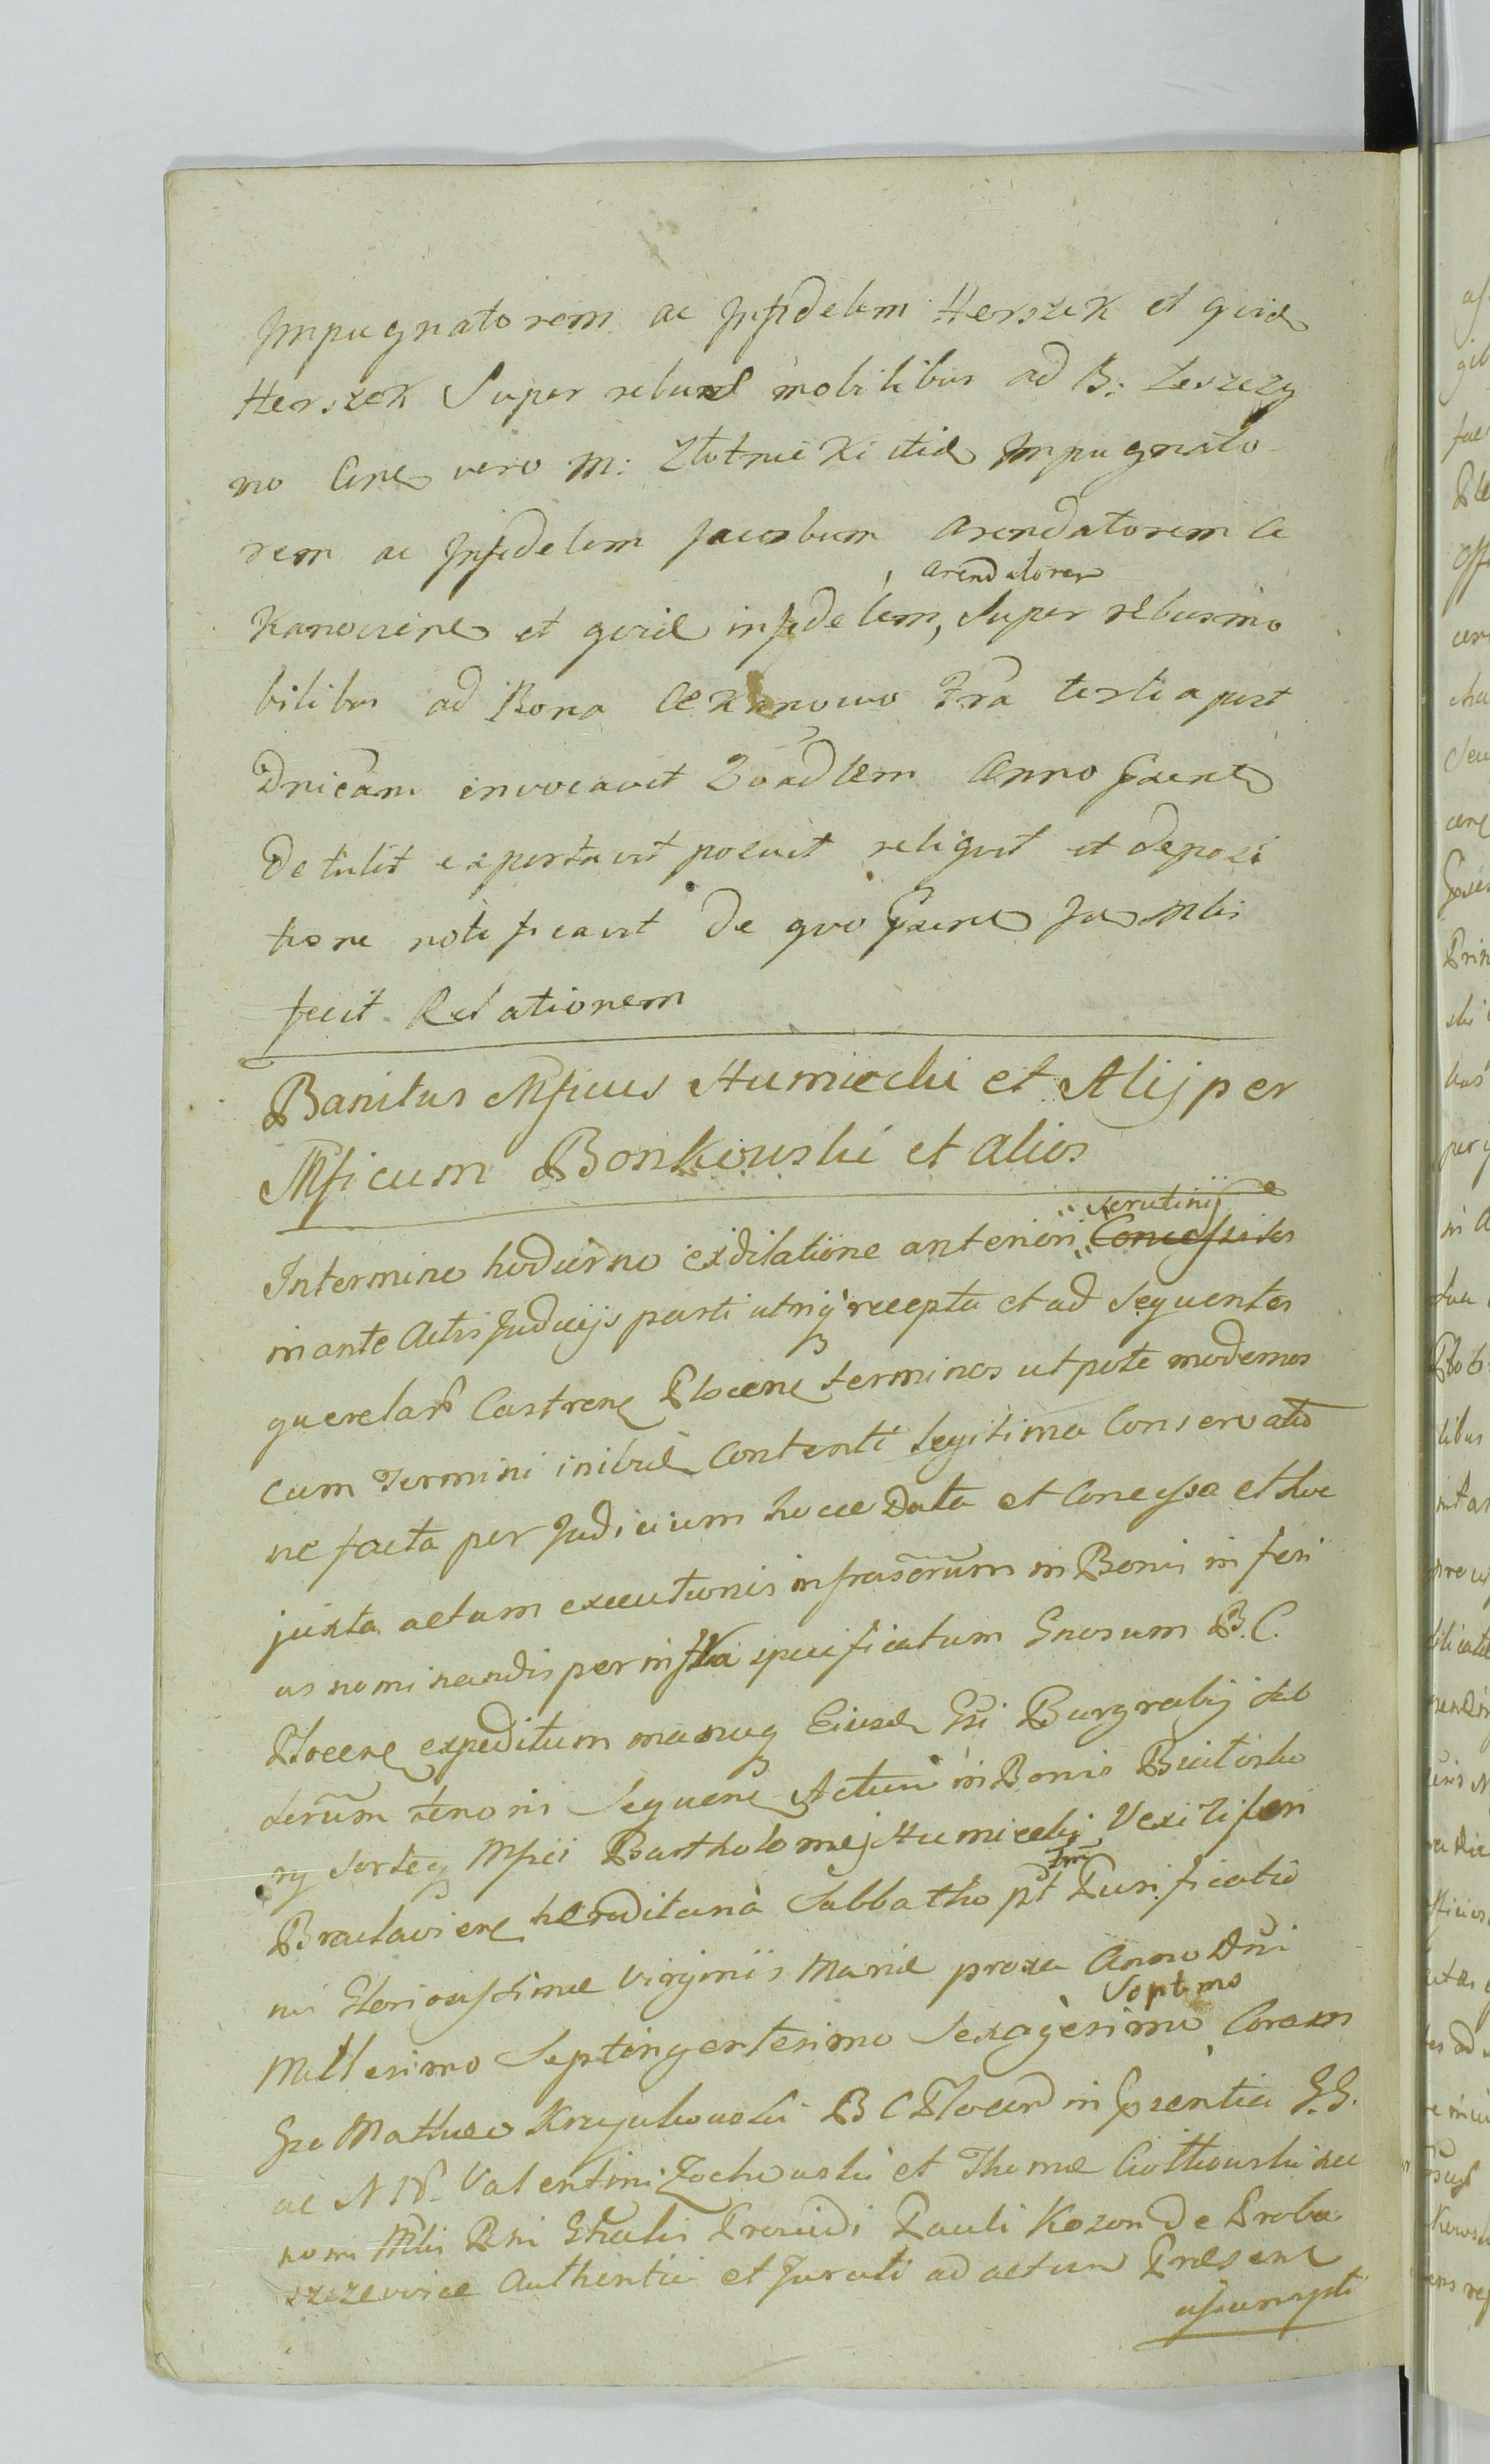 Impugnatorem ac Infidelem Herszek et quid
Herszek Super rebus mobilibus ad B: Leszczy
no Cine vero M: Złotnicki itid Impugnato
rem ac Infidelem Jacobum Arendatorem Ce
arendatorem
Kanoviene et quid infidelem, Super rebus mo
bilibus ad Bona Cekanowo Fra tertia post
Dnicam invocavit Quadlem Anno Praent
Detulit exportavit posuit reliquit et deposi
tione notificavit De quo Praene Ja Mlis
fecit Relationem
Banitus Mficus Humiecki et Alij per
Mficum Bonkowski et alios
Scrutinij
In termino hodierno exdilatione anteriori Concessites
in ante Actis Judicijs parti utriq recepta et ad Sequentes
querelar Castrens Plocens terminos utpote modernos
cum Termini inibid Contenti legitima Conservatio
ne facta per Judicium hocce Data et Concessa et hoc
juxta actum executionis infrascrum in Bonis inferi
us nominandis per infra specificatum Gnosum B. C.
Plocens expeditum manuq Eiusd Gsi Burgrabij sub
scrum tenoris Sequens Actum in Bonis Bieitosko
ry sorteq Mfici Bartholomej Humiecki Vexiliferi
Bractaviens hereditaria Sabbatho pt Fm Purificatio
nis Gloriosissimae Virginis Mariae proxa Anno Dni
Septimo
Millesimo Septingentesimo Sexagesimo Coram
Gso Mathaeo Krajkowski B C Plocen in Praentia G.G.
ac N N. Valentini Zochowski et Thomae Ciotkowski nec
non Mlis Rni Gtralis Providi Pauli Kozon De Proba
szczewice Authentici et Jurati ad actum Praesens
assumpti